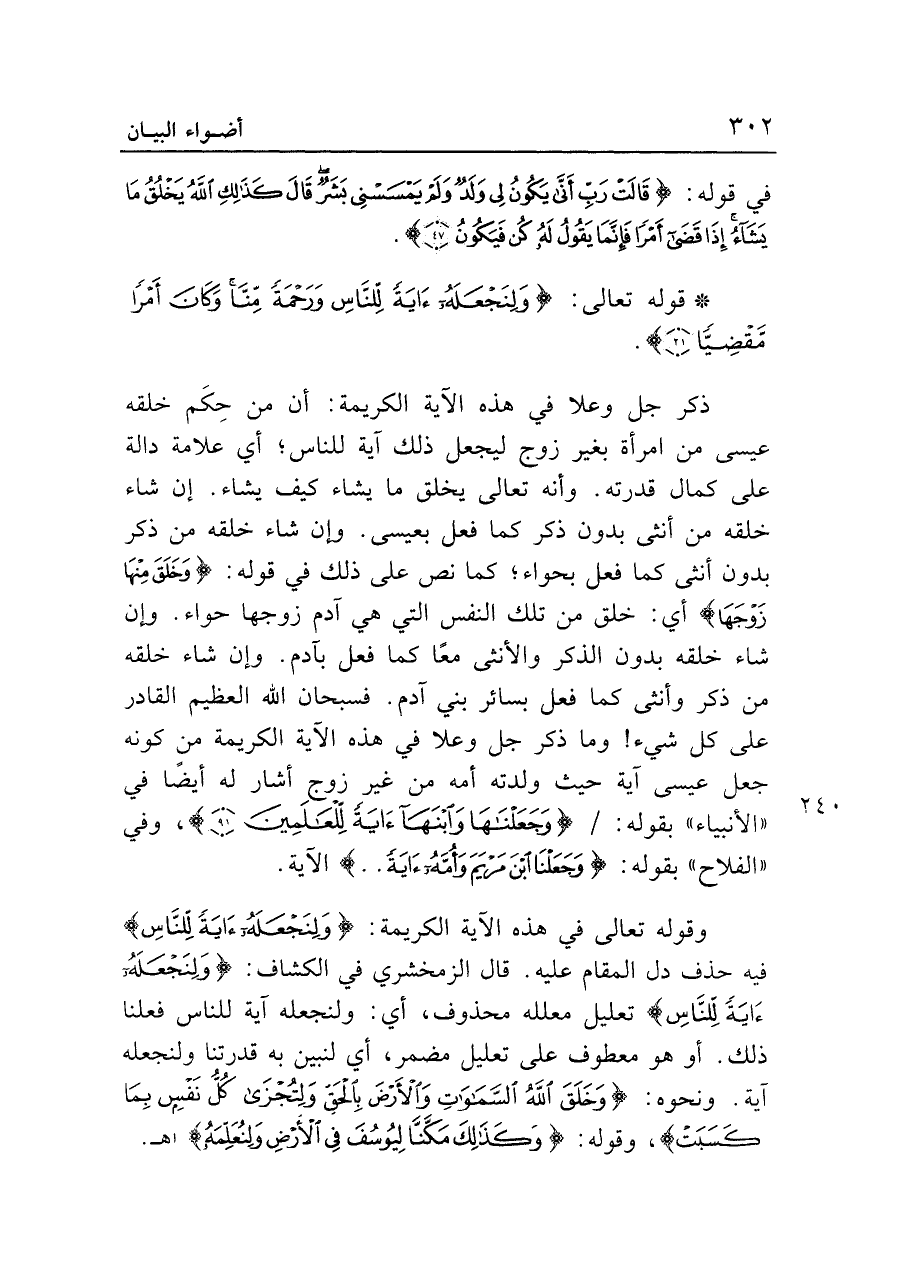 ٣٠٢ أضواء البيان
في قوله: ﴿قَالَتْ رَبِّ أَنَّىٰ يَكُونُ لِي وَلَدٌ وَلَمْ يَمْسَسْنِي بَشَرٌ ۖ قَالَ كَذَٰلِكِ ٱللَّهُ يَخْلُقُ مَا
يَشَآءُ ۚ إِذَا قَضَىٰٓ أَمْرًا فَإِنَّمَا يَقُولُ لَهُۥ كُن فَيَكُونُ ٤٧﴾.
* قوله تعالى: ﴿وَلِنَجْعَلَهُۥٓ ءَايَةً لِّلنَّاسِ وَرَحْمَةً مِّنَّا ۚ وَكَانَ أَمْرًا
مَّقْضِيًّا ٢١﴾.
ذكر جل وعلا في هذه الآية الكريمة: أن من حِكَم خلقه
عيسى من امرأة بغير زوج ليجعل ذلك آية للناس؛ أي علامة دالة
على كمال قدرته. وأنه تعالى يخلق ما يشاء كيف يشاء. إن شاء
خلقه من أنثى بدون ذكر كما فعل بعيسى. وإن شاء خلقه من ذكر
بدون أنثى كما فعل بحواء؛ كما نص على ذلك في قوله: ﴿وَخَلَقَ مِنْهَا
زَوْجَهَا﴾ أي: خلق من تلك النفس التي هي آدم زوجها حواء. وإن
شاء خلقه بدون الذكر والأنثى معًا كما فعل بآدم. وإن شاء خلقه
من ذكر وأنثى كما فعل بسائر بني آدم. فسبحان الله العظيم القادر
على كل شيء! وما ذكر جل وعلا في هذه الآية الكريمة من كونه
جعل عيسى آية حيث ولدته أمه من غير زوج أشار له أيضًا في
٢٤٠
«الأنبياء» بقوله: / ﴿وَجَعَلْنَٰهَا وَٱبْنَهَآ ءَايَةً لِّلْعَٰلَمِينَ ٩١﴾، وفي
«الفلاح» بقوله: ﴿وَجَعَلْنَا ٱبْنَ مَرْيَمَ وَأُمَّهُۥٓ ءَايَةً..﴾ الآية.
وقوله تعالى في هذه الآية الكريمة: ﴿وَلِنَجْعَلَهُۥٓ ءَايَةً لِّلنَّاسِ﴾
فيه حذف دل المقام عليه. قال الزمخشري في الكشاف: ﴿وَلِنَجْعَلَهُۥٓ
ءَايَةً لِّلنَّاسِ﴾ تعليل معلله محذوف، أي: ولنجعله آية للناس فعلنا
ذلك. أو هو معطوف على تعليل مضمر، أي لنبين به قدرتنا ولنجعله
آية. ونحوه: ﴿وَخَلَقَ ٱللَّهُ ٱلسَّمَٰوَٰتِ وَٱلْأَرْضَ بِٱلْحَقِّ وَلِتُجْزَىٰ كُلُّ نَفْسٍۭ بِمَا
كَسَبَتْ﴾، وقوله: ﴿وَكَذَٰلِكَ مَكَّنَّا لِيُوسُفَ فِي ٱلْأَرْضِ وَلِنُعَلِّمَهُۥ﴾ اهـ.